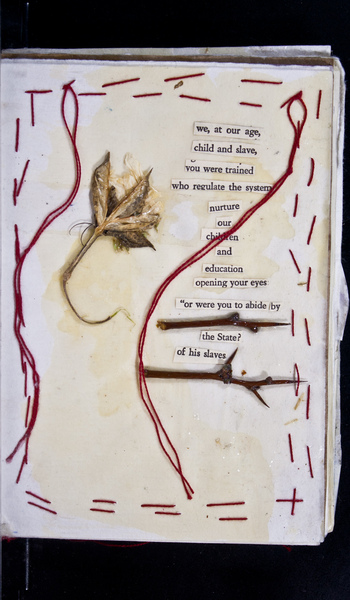 we, at our age,
child and slave,
you were trained
who regulate the system
nurture
our
children
and
education
opening your eyes
"or were you to abide by
the State?
of his slaves